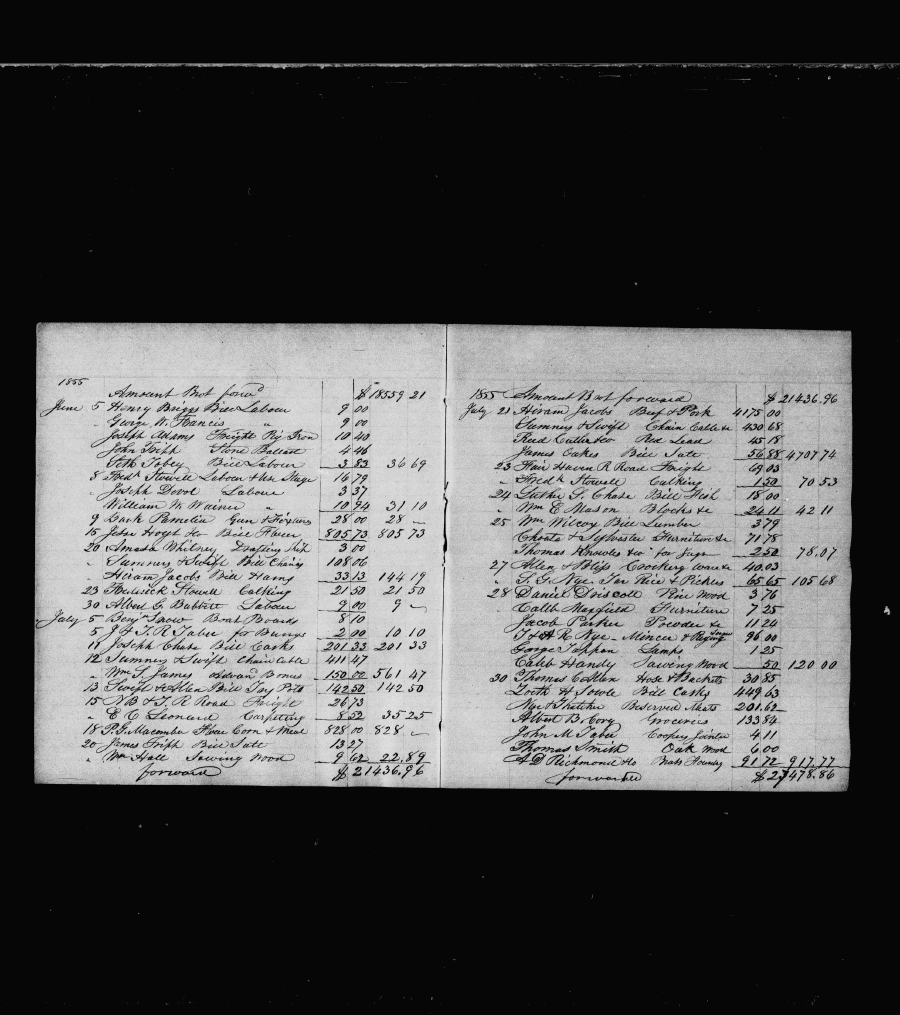 1855
Amount Brot forwd $18559 21
June 5 Henry Briggs Bill Labour 9 00
" George W. Francis " 9 00
Joseph Adams Freight Pig Iron 10 40
John Frith Stone Ballast 4 46
Seth Tobey Bill Labour 3 83 36 69
8 Fredk Stowell Labour & Use Stage 16 79
" Joseph Dovol Labour 3 37
William W. Wainer " 10 94 31 10
9 Bark Pamelia Gun & Fixtures 28 00 28 "
15 Jesse Hoyt & Co Bill Flour 805,73 805 73
20 Amasa Whitney Drafting Ship 3 00
" Sumners & Swift Bill Chains 108 06
" Hiram Jacobs Bill Hams 33 13 144 19
23 Frederick Stowell Calking 21 50 21 50
30 Albert G. Babbitt Labour 9 00 9 "
July 5 Benjn Snow Boat Boards 8 10
5 J & T. R Taber for Bungs 2 00 10 10
11 Joseph Chase Bill Casks 201 33 201 33
12 Sumner & Swift Chain Cable 411 47
" Wm T. James Advand Bonus 150.00 561 47
13 Swift & Allen Bill Tay Pots 142 50 142 50
15 N B & T. R Road Freight 26 73
" E. C Leonard Carpeting 8 52 35 25
18 P. G. Macomber Flour Corn & Meal 828 00 828 "
20 James Frith Bill Salt 13 27
" Wm Hall Sawing Wood 9 62 22.89
forward $21436.96
1855 Amount Brt forward $21436.96
July 21 Hiram Jacobs Beef & Pork 4175 00
" Sumney & Swift Chain Cable &c 430 68
" Reed Cutler & co Red Lead 45 18
James Oakes Bill Salt 56 88 4707 74
23 Fair Haven R Road Freight 69 03
" Fredk Stowell Calking 1 50 70 53
24 Luther G. Chase Bill Fish 18 00
" Wm E Mason Blocks &c 24 11 42 11
25 Wm Wilcox Bill Lumber 3 79
Choate & Sylvester Furniture &c 71 78
Thomas Knowles & co for Jugs 2 50 78.07
27 Allen & Bliss Crockery Ware &c 40.03
" T. G. Nye Jar Rice & Pickles 65 65 105 68
28 Daniel Driscoll Pine Wood 3 76
Caleb Maxfield Furniture 7 25
Jacob Parker Powder &c 11 24
T & A R Nye Mince & 96 00
George Tappan Lamps 1 25
Caleb Handy Sawing Wood 50 120 00
30 Thomas C Allen Hose & Buckets 30 85
H Sowle Bill Casks 449 63
Nye & Thatcher Preserved Meats 201.62
Albert D. Cory Groceries 133 84
John M Taber Coopers Jointer 4.11
Thomas Smith Oak Wood 6.00
A D Richmond & Co Brass Foundry 91 72 917.77
forward $27478.86